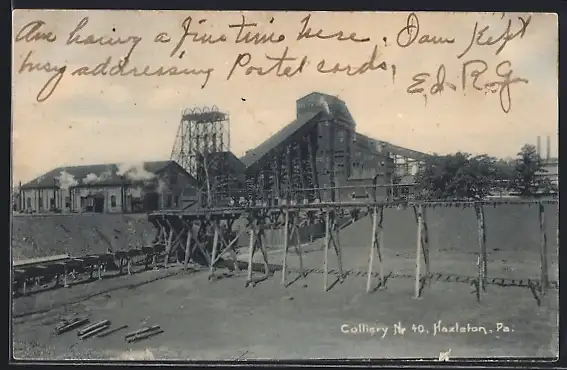 Am having a fine time here. Dan kept
busy addressing Postal cards,
Ed. R. G.
Colliery No 40, Hazleton, Pa.